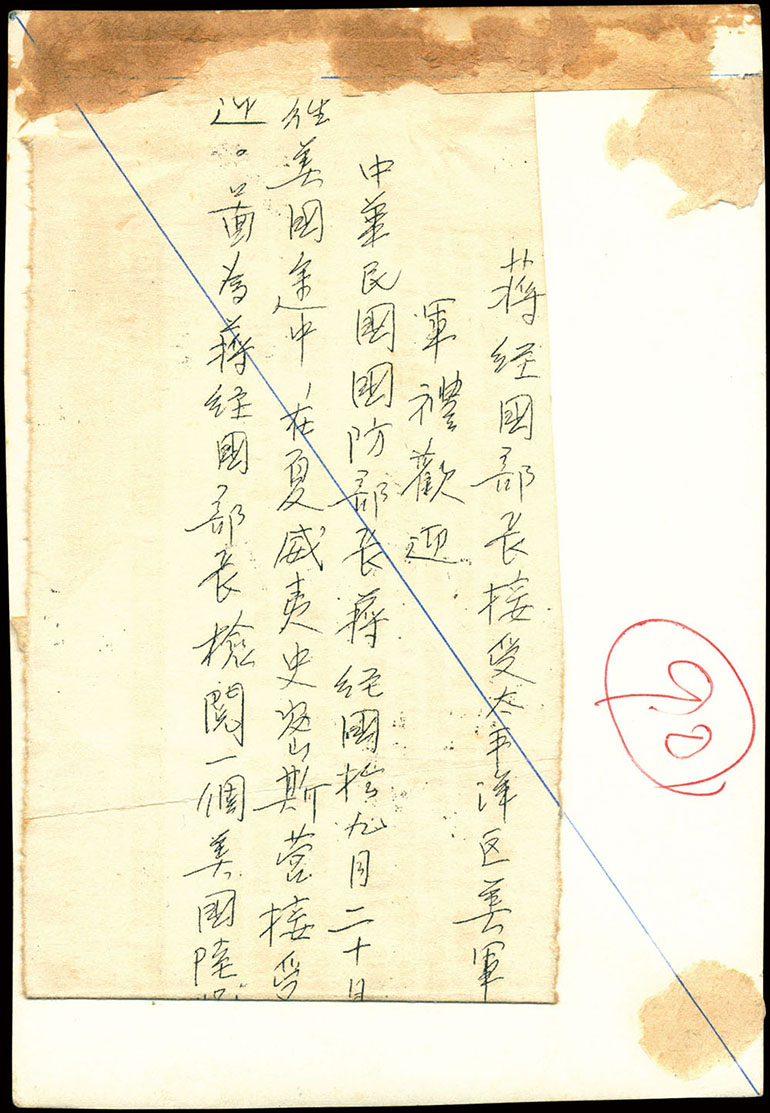 蔣经國部長接受太平洋区美軍
軍禮歡迎
中華民國國防部長蔣经國於九月二十日
往美國途中,在夏威夷史密斯营接受
迎。啚為蔣经國部長檢閱一個美國陸
90